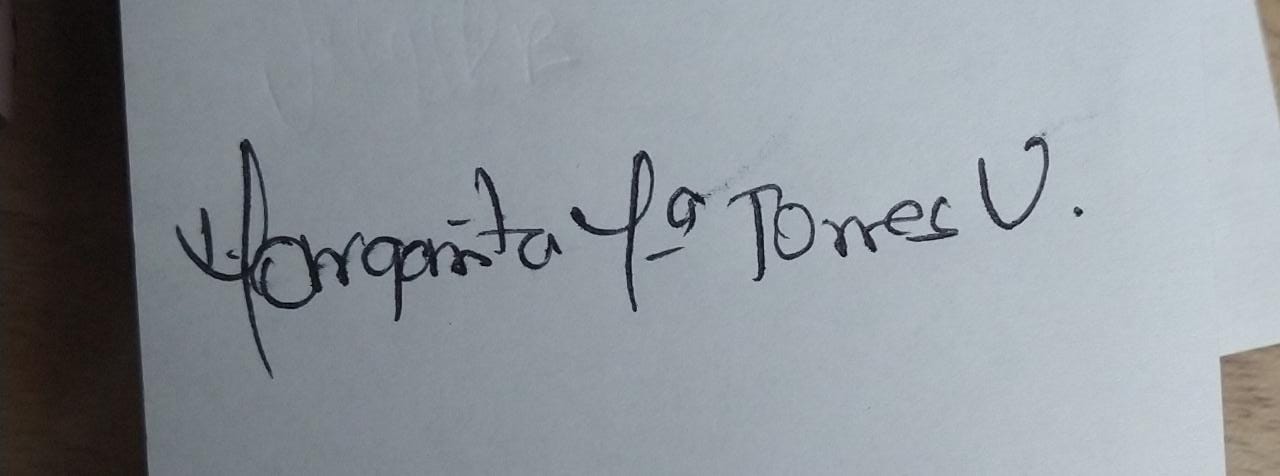 Margarita Mª Torres V.